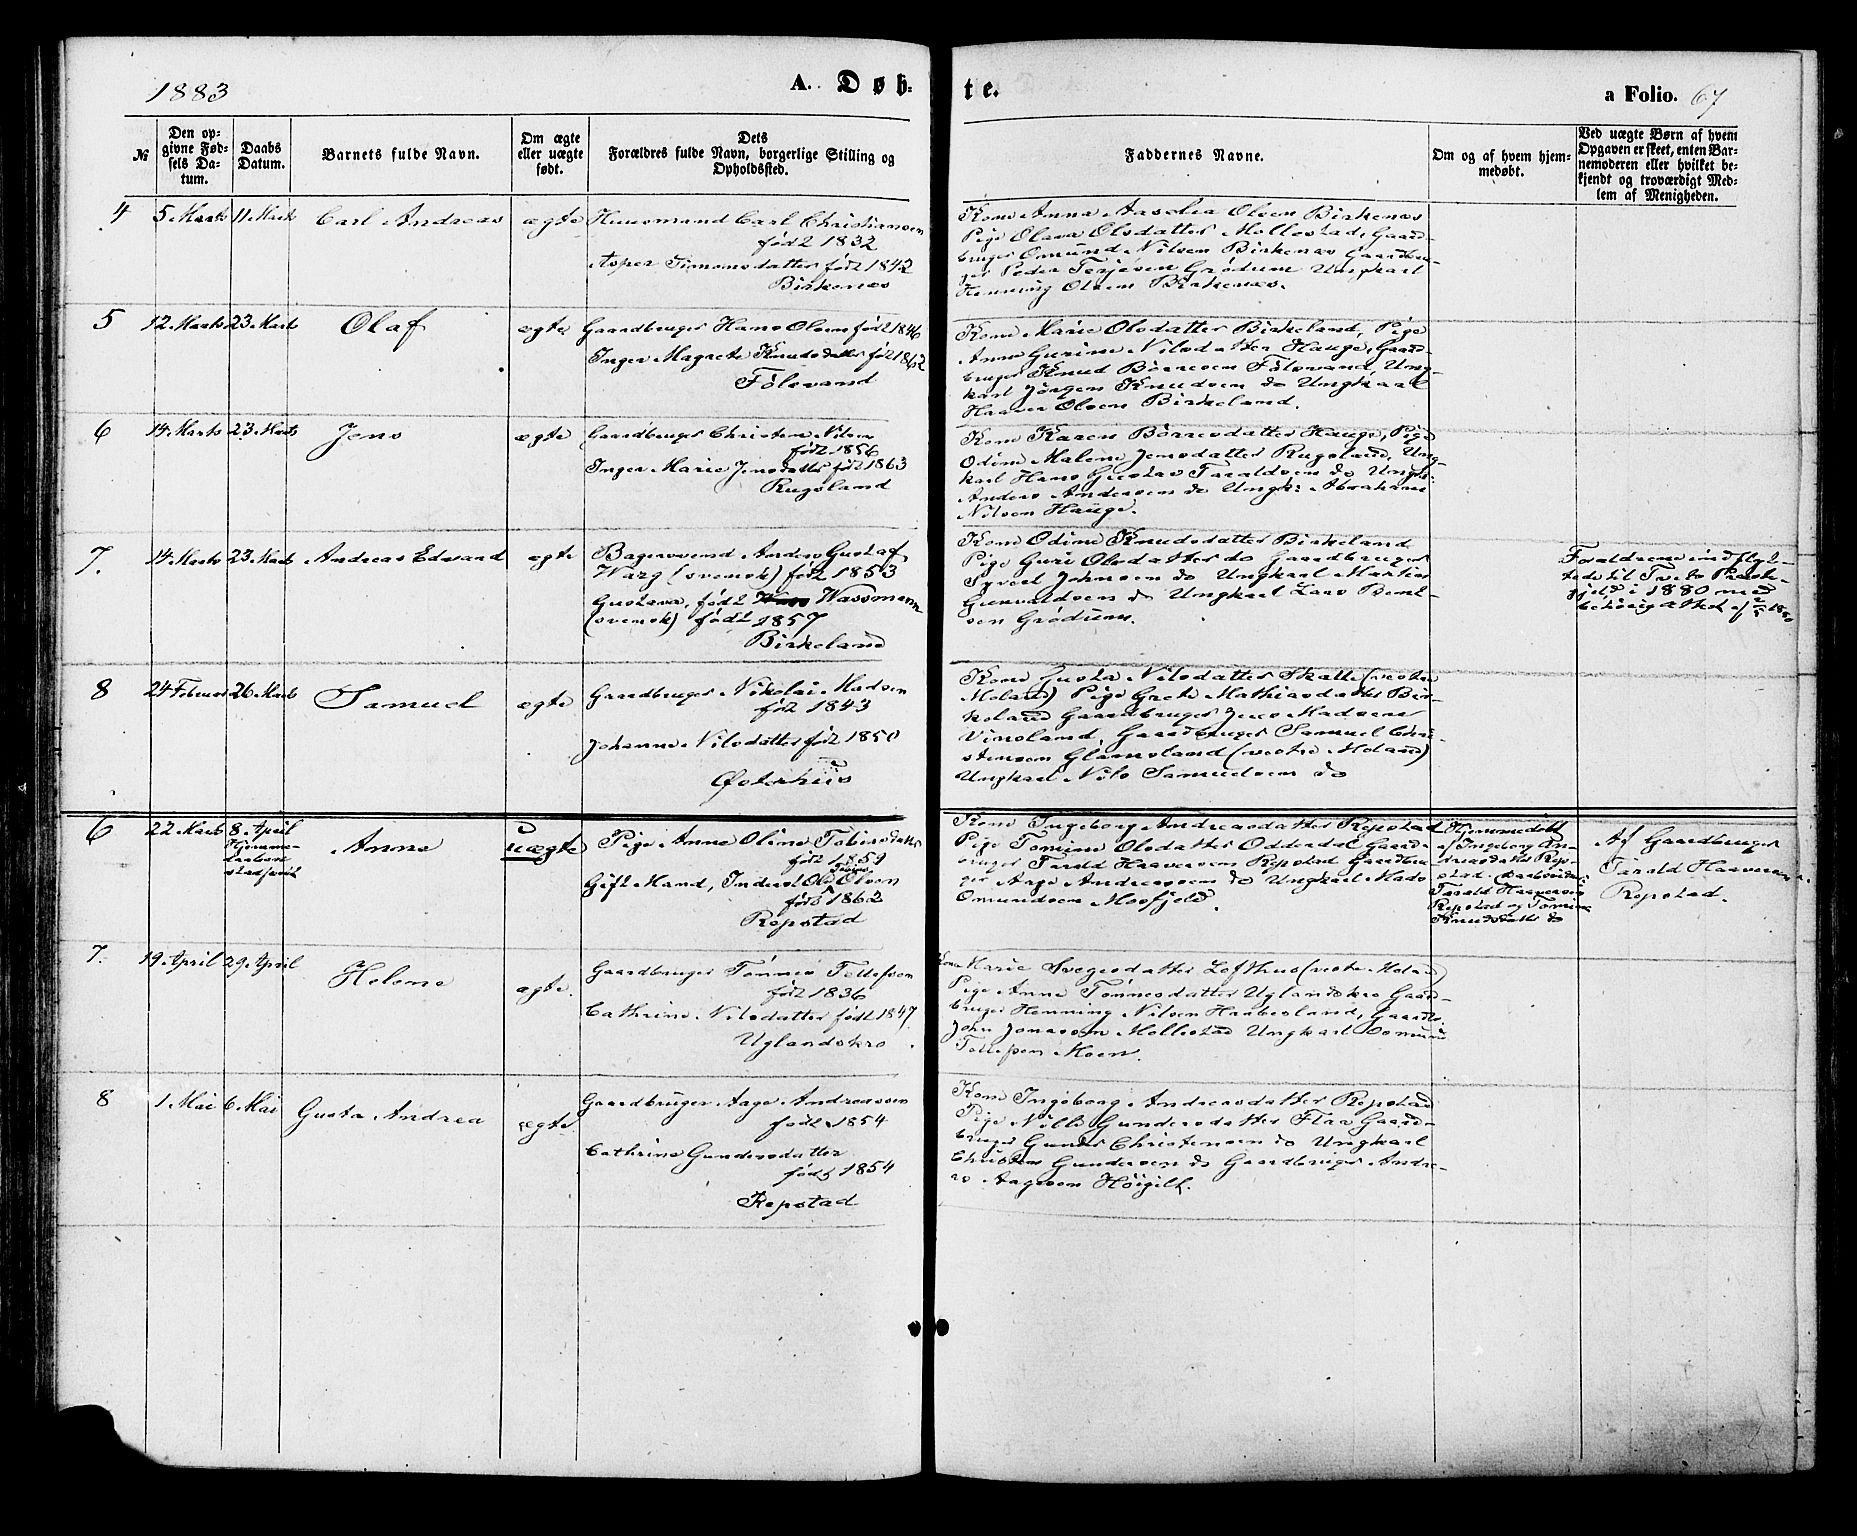 1883
A. Døb-
te.
a Folio. 67
№
Den op-
givne Fød-
sels Da-
tum.
Daabs
Datum.
Barnets fulde Navn.
Om ægte
eller uægte
født.
Dets
Forældres fulde Navn, borgerlige Stilling og
Opholdssted.
Faddernes Navne.
Om og af hvem hjem-
medøbt.
Ved uægte Børn af hvem
Opgaven er skeet, enten Bar-
nemoderen eller hvilket be-
kjendt og troværdigt Med-
lem af Menigheden.
4
5 Marts
11 Marts
Carl Andreas
ægte
Huusmand Carl Christiansen
født 1832
Asper Simonsdatter født 1842
Birkenæs
Kone Anna Olsen Birkenæs
Pige Olava Olsdatter Mollestad, Gaard-
bruger Omund Nilsen Birkenæs Gaardbru-
ger Peder Terjesen Grødum Ungkarl
Henning Olsen Birkenæs.
5
12 Marts
23 Marts
Olaf
ægte
Gaardbruger Hans Olsen født 1846
Inger Magrete Knudsdatter født 1862
Fölsvand
Kone Marie Olsdatter Birkeland, Pige
Anne Gurine Nilsdatter Hauge, Gaard-
bruger Knud Börresen Fölsvand, Ung-
karl Jörgen Knudsen do Ungkarl
Haaver Olsen Birkeland.
6
14 Marts
23 Marts
Jens
ægte
Gaardbruger Christen Nilsen
født 1856
Inger Marie Jensdatter født 1863
Rugsland
Kone Karen Börresdatter Hauge, Pige
Odine Malene Jensdatter Rugsland, Ung-
karl Hans Gustav Taraldsen do Ungk:
Anders Andersen do Ungk: Abraham
Nilsen Hauge.
7.
14 Marts
23 Marts
Andreas Edvard
ægte
Bagersvend Anders Gustaf
Warg (svensk) født 1853
Gustava, født Wassmann
(svensk) født 1857
Birkeland
Kone Odine Knudsdatter Birkeland
Pige Guri Olsdatter do Gaardbruger
Syvert Johnsen do Ungkarl Martin
Gunvaldsen do Ungkarl Lars Bent-
sen Grødum.
Forældrene indflyt-
tede til Tveto Præste-
gjeld i 1880 med
behörig attest af 2/5 1880
8
24 Februar
26 Marts
Samuel
ægte
Gaardbruger Nikolai Madsen
født 1843
Johanne Nilsdatter født 1850
Østerhus
Kone Gusta Nilsdatter Skatte (vestre
Moland) Pige Grete Mathiasdatter Bir-
keland Gaardbruger Jens Madsen
Vinsland, Gaardbruger Samuel Chri-
stensen Glamsland (vestre Moland)
Ungkarl Nils Samuelsen do
6
22 Marts
8 April
Hjemme-
daaben
stadfæstet
Anne
uægte
Pige Anne Oline Tobiasdatter
født 1859
Gift Mand, Inderst Ole Olsen
født 1862
Repstad
Kone Ingeborg Andreasdatter Repstad
Pige Tomine Olsdatter Odderdal Gaard-
bruger Tarald Haaversen Repstad Gaardbru-
ger Aage Andreassen do Ungkarl Mads
Omundsen Mosfjeld.
Hjemmedöbt
af Ingeborg An-
dreasdatter Rep-
stad.
Tarald Haaversen
Repstad og Tomine
Knudsdatter do
Af Gaardbruger
Tarald Haaversen
Repstad.
7.
19 April
29 April
Helene
ægte.
Gaardbruger Tönnes Tellefsen
født 1836
Cathrine Nilsdatter født 1847
Uglandskro
Kone Marie Svegesdatter Lofthus (vestre Moland)
Pige Anne Tönnesdatter Uglandskro Gaard-
bruger Henning Nilsen Haabesland, Gaardb.
John Jonassen Mollestad Ungkarl Osmund
Tellefsen Moen.
8
1 Mai
6 Mai
Gusta Andrea
ægte
Gaardbruger Aage Andreassen
født 1854
Cathrine Gundersdatter
født 1854
Repstad
Kone Ingeborg Andreasdatter Repstad
Pige Nilli Gundersdatter Flaa Gaard-
bruger Gunder Christensen do Ungkarl
Christen Gundersen do Gaardbruger Andre-
as Aagesen Höigilt.